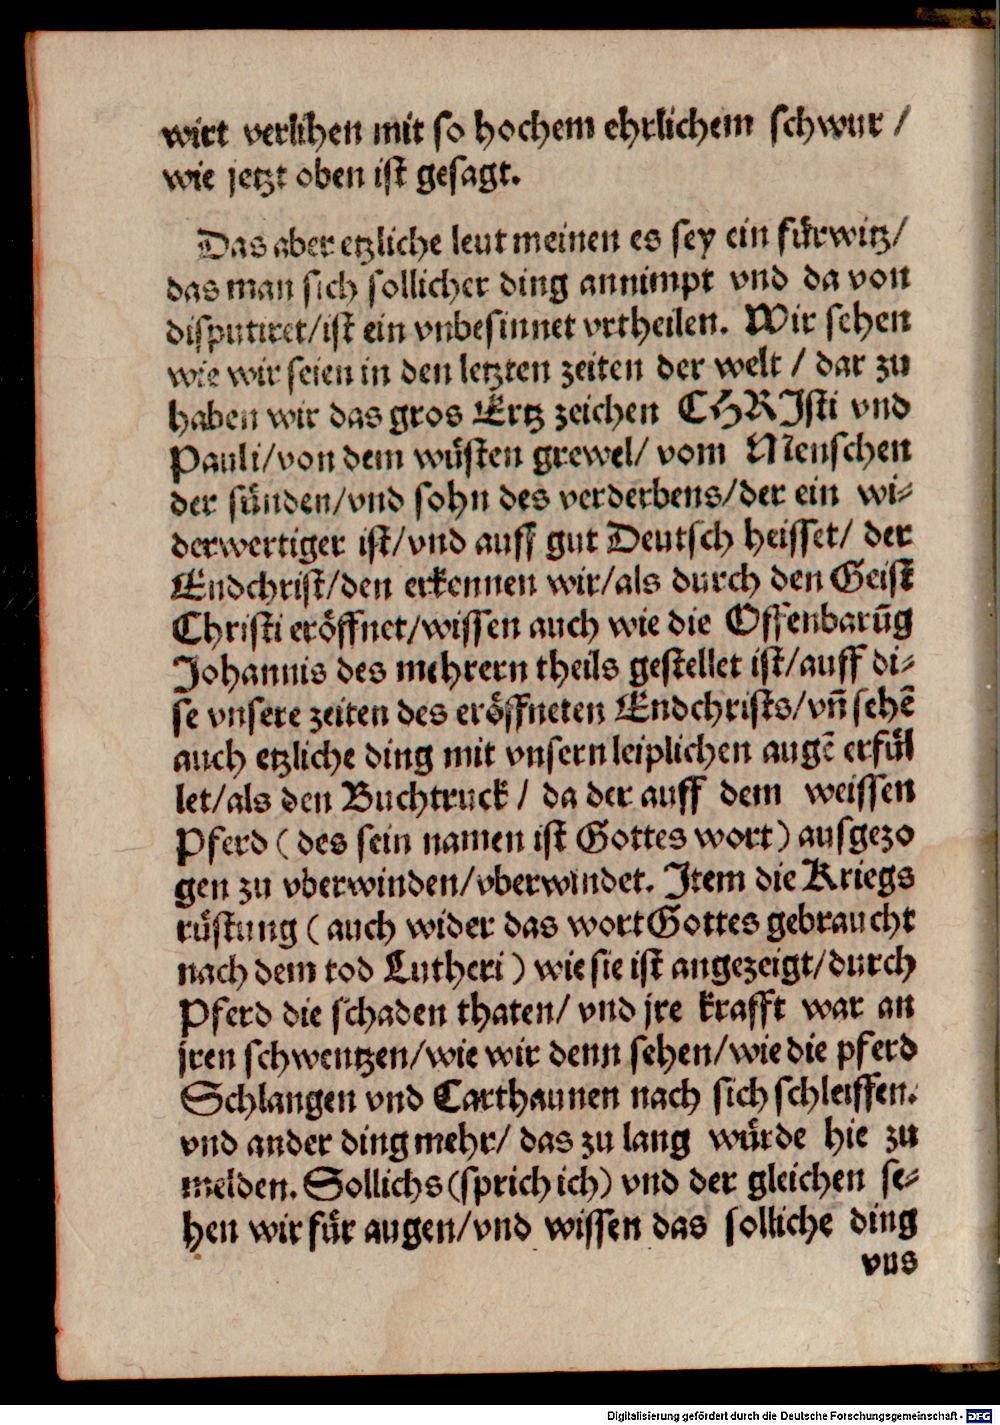 wirt verlihen mit so hochem ehrlichem schwur /
wie jetzt oben ist gesagt.
Das aber etzliche leut meinen es sey ein fürwitz/
das man sich sollicher ding annimpt vnd da von
disputiret/ist ein vnbesinnet vrtheilen. Wir sehen
wie wir seien in den letzten zeiten der welt / dar zu
haben wir das gros Ertz zeichen CHRJsti vnd
Pauli/von dem wüsten grewel/ vom Menschen
der sünden/vnd sohn des verderbens/der ein wi-
derwertiger ist/vnd auff gut Deutsch heisset/ der
Endchrist/den erkennen wir/als durch den Geist
Christi eröffnet/wissen auch wie die Offenbarūg
Johannis des mehrern theils gestellet ist/auff di-
se vnsere zeiten des eröffneten Endchrists/vn̄ sehē
auch etzliche ding mit vnsern leiplichen augē erfül
let/als den Buchtruck / da der auff dem weissen
Pferd ( des sein namen ist Gottes wort ) ausgezo
gen zu vberwinden/vberwindet. Jtem die Kriegs
rüstung ( auch wider das wort Gottes gebraucht
nach dem tod Lutheri ) wie sie ist angezeigt/durch
Pferd die schaden thaten/ vnd jre krafft war an
jren schwentzen/wie wir denn sehen/wie die pferd
Schlangen vnd Carthaunen nach sich schleiffen.
vnd ander ding mehr/ das zu lang würde hie zu
melden. Sollichs (sprich ich) vnd der gleichen se-
hen wir für augen/vnd wissen das solliche ding
vns
Digitalisierung gefördert durch die Deutsche Forschungsgemeinschaft - DFG